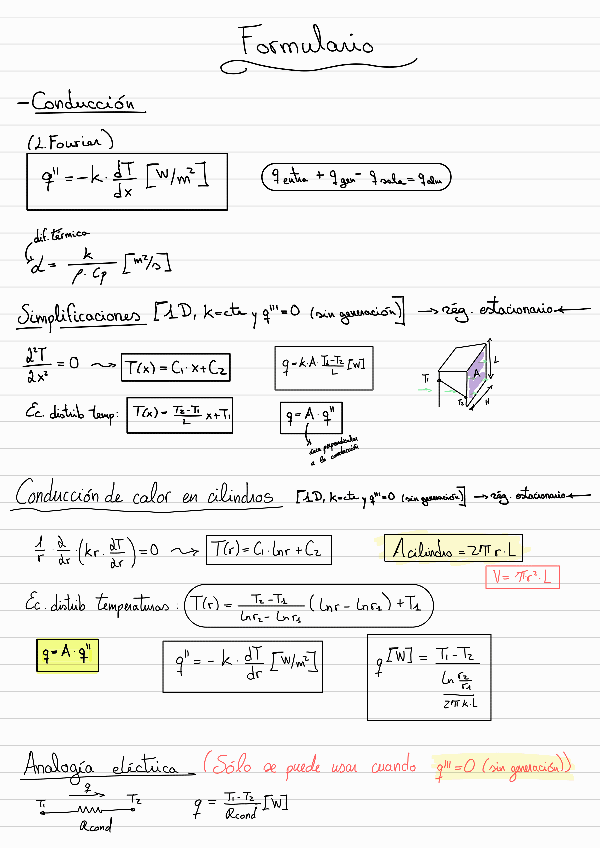 Formulario
- Conducción
(L.Fourier)
q'' = -k · dT/dx [W/m²]
q entra + q gen - q sale = q alm
dif. térmica
α = k/(ρ · Cp) [m²/s]
Simplificaciones [1D, k=cte y q'''=0 (sin generación)] → rég. estacionario ←
∂²T/∂x² = 0 ⇝ T(x) = C₁ · x + C₂
q = k·A · (T₁-T₂)/L [W]
T₁ T₂ A L H
Ec. distrib temp: T(x) = (T₂-T₁)/L x + T₁
q = A · q''
área perpendicular
a la conducción
Conducción de calor en cilindros [1D, k=cte y q'''=0 (sin generación)] → rég. estacionario ←
1/r · ∂/∂r · (kr · ∂T/∂r) = 0 ⇝ T(r) = C₁ · lnr + C₂
A cilindro = 2πr·L
V = πr²·L
Ec. distrib temperaturas: T(r) = (T₂-T₁)/(lnr₂-lnr₁) (lnr - lnr₁) + T₁
q = A · q''
q'' = -k · dT/dr [W/m²]
q [W] = (T₁-T₂)/(ln(r₂/r₁)/(2πk·L))
Analogía eléctrica (Sólo se puede usar cuando q'''=0 (sin generación))
q
T₁ T₂
Rcond
q = (T₁-T₂)/Rcond [W]